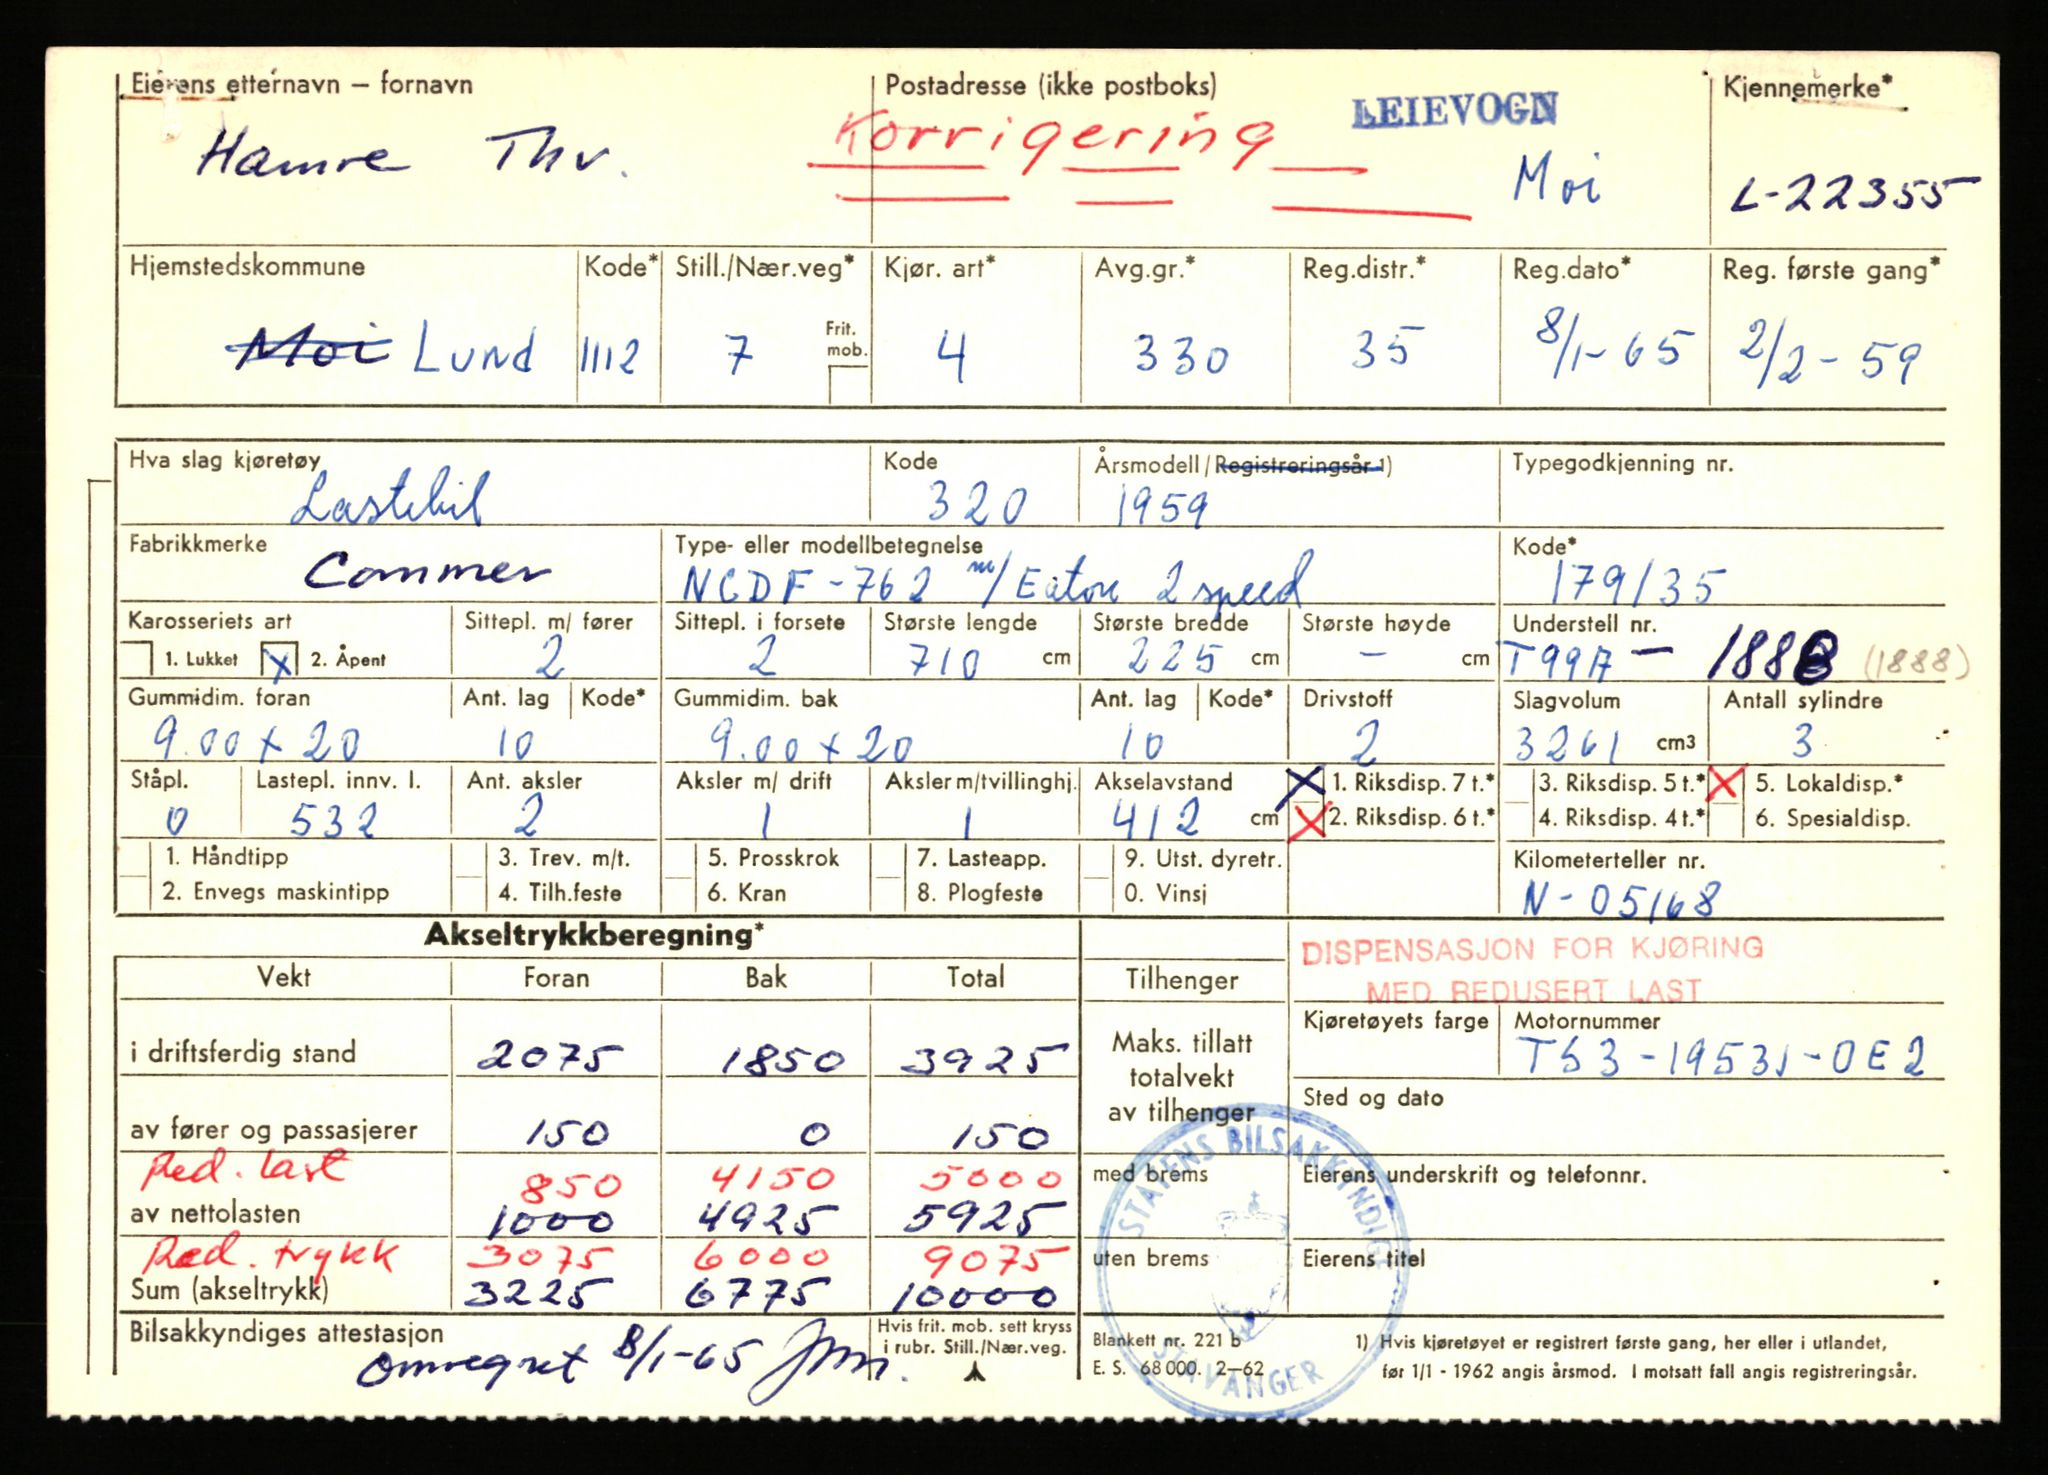 Eierens etternavn — fornavn Postadresse (ikke postboks) Kjennemerke*
LEIEVOGN
Korrigering
Hamre Thv. Moi L-22355
Hjemstedskommune Kode* Still./Nær.veg* Kjør. art* Avg.gr.* Reg.distr.* Reg.dato* Reg. første gang*
Frit. mob.
Moi Lund 1112 7 4 330 35 8/1-65 2/2-59
Hva slag kjøretøy Kode Årsmodell/Registreringsår 1) Typegodkjenning nr.
Lastebil 320 1959
Fabrikkmerke Type- eller modellbetegnelse Kode*
Commer NCDF-762 m/Eaton 2 speed 179/35
Karosseriets art Sittepl. m/ fører Sittepl. i forsete Største lengde Største bredde Største høyde Understell nr.
1. Lukket X 2. Åpent 2 2 710 cm 225 cm - cm T99A - 1888 (1888)
Gummidim. foran Ant. lag Kode* Gummidim. bak Ant. lag Kode* Drivstoff Slagvolum Antall sylindre
9.00 x 20 10 9.00 x 20 10 2 3261 cm3 3
Ståpl. Lastepl. innv. l. Ant. aksler Aksler m/ drift Aksler m/tvillinghj. Akselavstand X 1. Riksdisp. 7 t.* 3. Riksdisp. 5 t.* X 5. Lokaldisp.*
0 532 2 1 1 412 cm X 2. Riksdisp. 6 t.* 4. Riksdisp. 4 t.* 6. Spesialdisp.
1. Håndtipp 3. Trev. m/t. 5. Prosskrok 7. Lasteapp. 9. Utst. dyretr. Kilometerteller nr.
2. Envegs maskintipp 4. Tilh.feste 6. Kran 8. Plogfeste 0. Vinsj N-05168
Akseltrykkberegning*
DISPENSASJON FOR KJØRING
MED REDUSERT LAST
Vekt Foran Bak Total Tilhenger
Kjøretøyets farge Motornummer
i driftsferdig stand 2075 1850 3925 Maks. tillatt totalvekt av tilhenger TS3-19531-OE2
Sted og dato
av fører og passasjerer 150 0 150
Red. last 850 4150 5000 med brems Eierens underskrift og telefonnr.
av nettolasten 1000 4925 5925
Red. trykk 3075 6000 9075 uten brems Eierens titel
Sum (akseltrykk) 3225 6775 10000
STATENS BILSAKKYNDIGE
STAVANGER
Bilsakkyndiges attestasjon Hvis frit. mob. sett kryss i rubr. Still./Nær.veg.
omregnet 8/1-65
Blankett nr. 221 b
E. S. 68 000. 2—62
1) Hvis kjøretøyet er registrert første gang, her eller i utlandet,
før 1/1 - 1962 angis årsmod. I motsatt fall angis registreringsår.